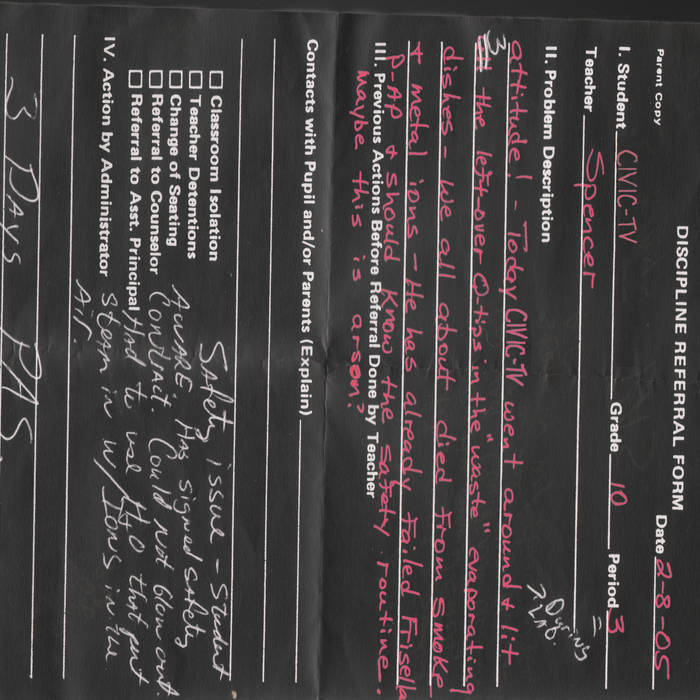 Parent Copy
DISCIPLINE REFERRAL FORM
Date 2-8-05
I. Student CIVIC-TV Grade 10 Period 3
Teacher Spencer
During
Lab.
II. Problem Description
attitude! - Today CIVIC-TV went around & lit
3 the left over Q-tips in the "waste" evaporating
dishes - we all about died from smoke
& metal ions - He has already failed Frisella
P-AP & should know the safety routine.
III. Previous Actions Before Referral Done by Teacher
Maybe this is arson?
Contacts with Pupil and/or Parents (Explain)
Safety issue - Student
☐ Classroom Isolation
☐ Teacher Detentions
AWARE. Has signed safety
☐ Change of Seating
Contract. Could not blow out.
☐ Referral to Counselor
Had to use H2O that put
☐ Referral to Asst. Principal
Steam in w/ Ions in the
IV. Action by Administrator
Air.
3 DAYS PAS.